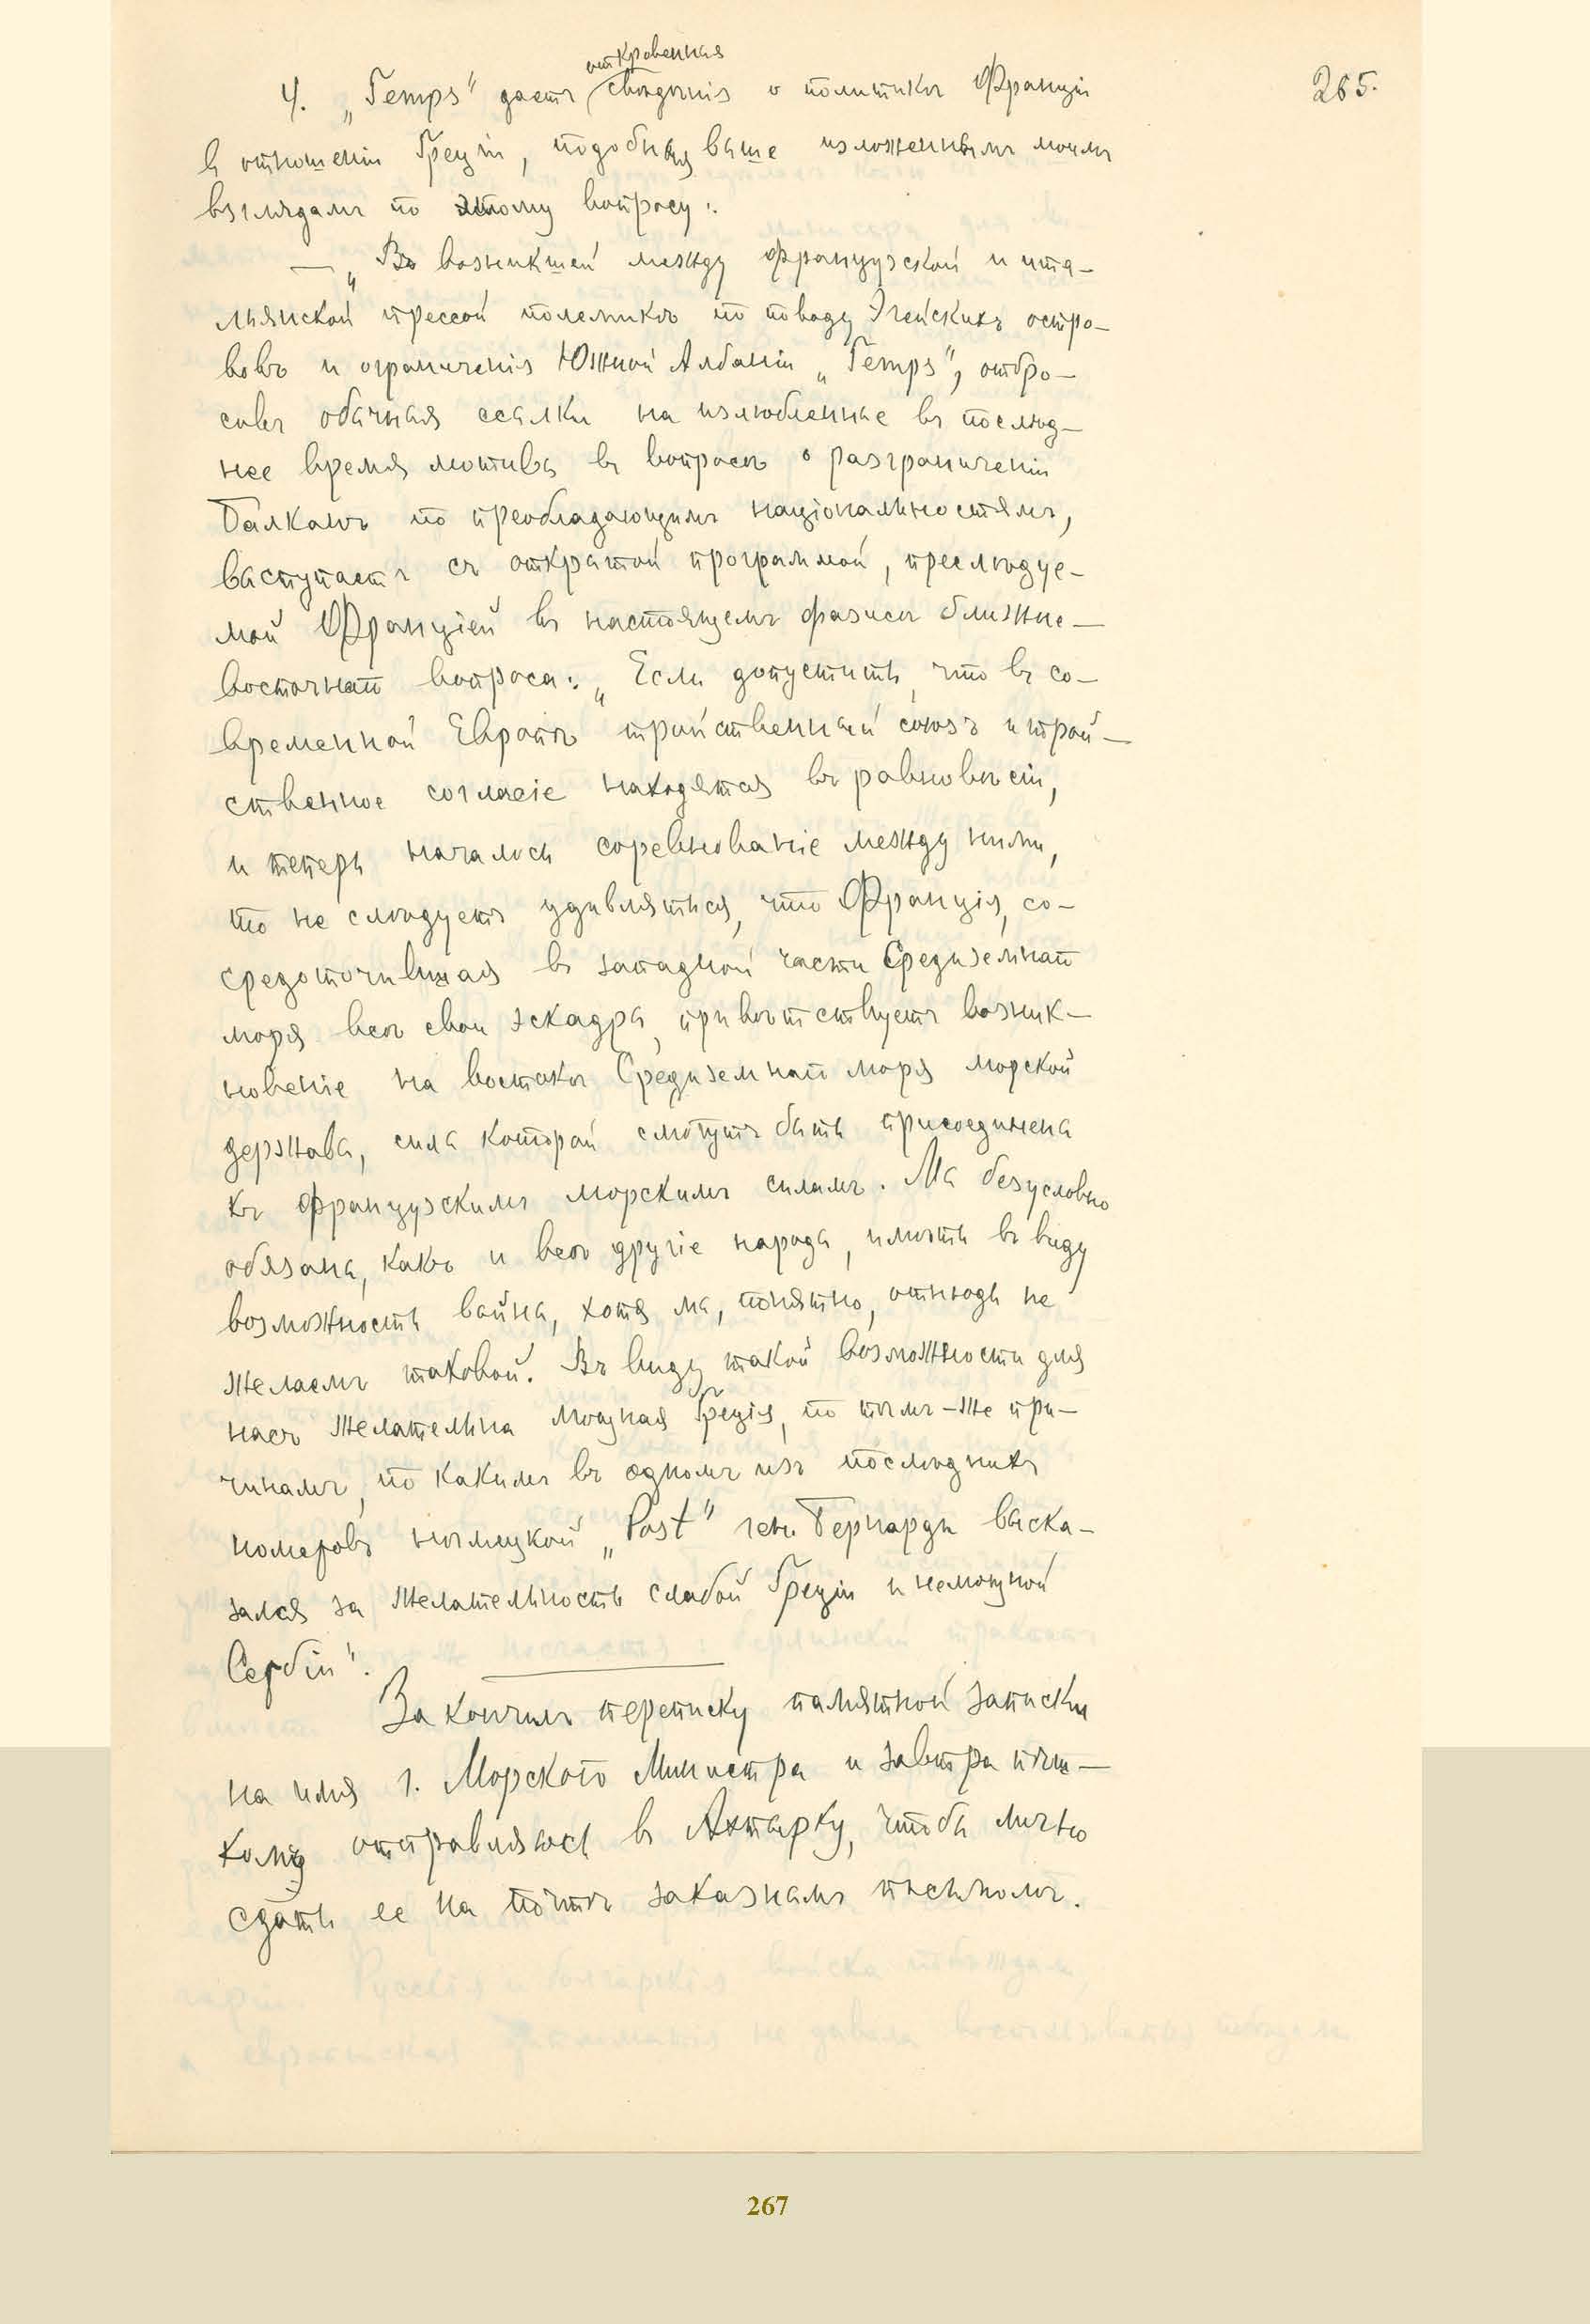 265.
откровенная
4. „Temps“ даетъ свѣдѣнія о политикѣ Франціи
въ отношеніи Греціи, подобныя выше изложеннымъ моимъ
взглядамъ по этому вопросу:
— „Въ возникшей между французской и ита-
льянской прессой полемикѣ по поводу Эгейскихъ остро-
вовъ и ограниченія Южной Албаніи „Temps“, отбро-
сивъ обычныя ссылки на излюбленные въ послѣд-
нее время мотивы въ вопросѣ о разграниченіи
Балканъ по преобладающимъ національностямъ,
выступаетъ съ открытой программой, преслѣдуе-
мой Франціей въ настоящемъ фазисѣ ближне-
восточнаго вопроса: „Если допустить, что въ со-
временной Европѣ тройственный союзъ и трой-
ственное согласіе находятся въ равновѣсіи,
и теперь началось соревнованіе между ними,
то не слѣдуетъ удивляться, что Франція, со-
средоточившая въ западной части Средиземнаго
моря всѣ свои эскадры, привѣтствуетъ возник-
новеніе на востокѣ Средиземнаго моря морской
державы, сила которой смогутъ быть присоединена
къ французскимъ морскимъ силамъ. Мы безусловно
обязаны, какъ и всѣ другіе народы, имѣть въ виду
возможность войны, хотя мы, понятно, отнюдь не
желаемъ таковой. Въ виду такой возможности для
насъ желательна мощная Греція, по тѣмъ-же при-
чинамъ, по какимъ въ одномъ изъ послѣднихъ
номеровъ нѣмецкой „Post“ ген. Бернарди выска-
зался за желательность слабой Греціи и немощной
Сербіи“.
Закончилъ переписку памятной записки
на имя г. Морского Министра и завтра пѣш-
комъ отправляюсь въ Ахтырку, чтобы лично
сдать ее на почтѣ заказнымъ письмомъ.
267